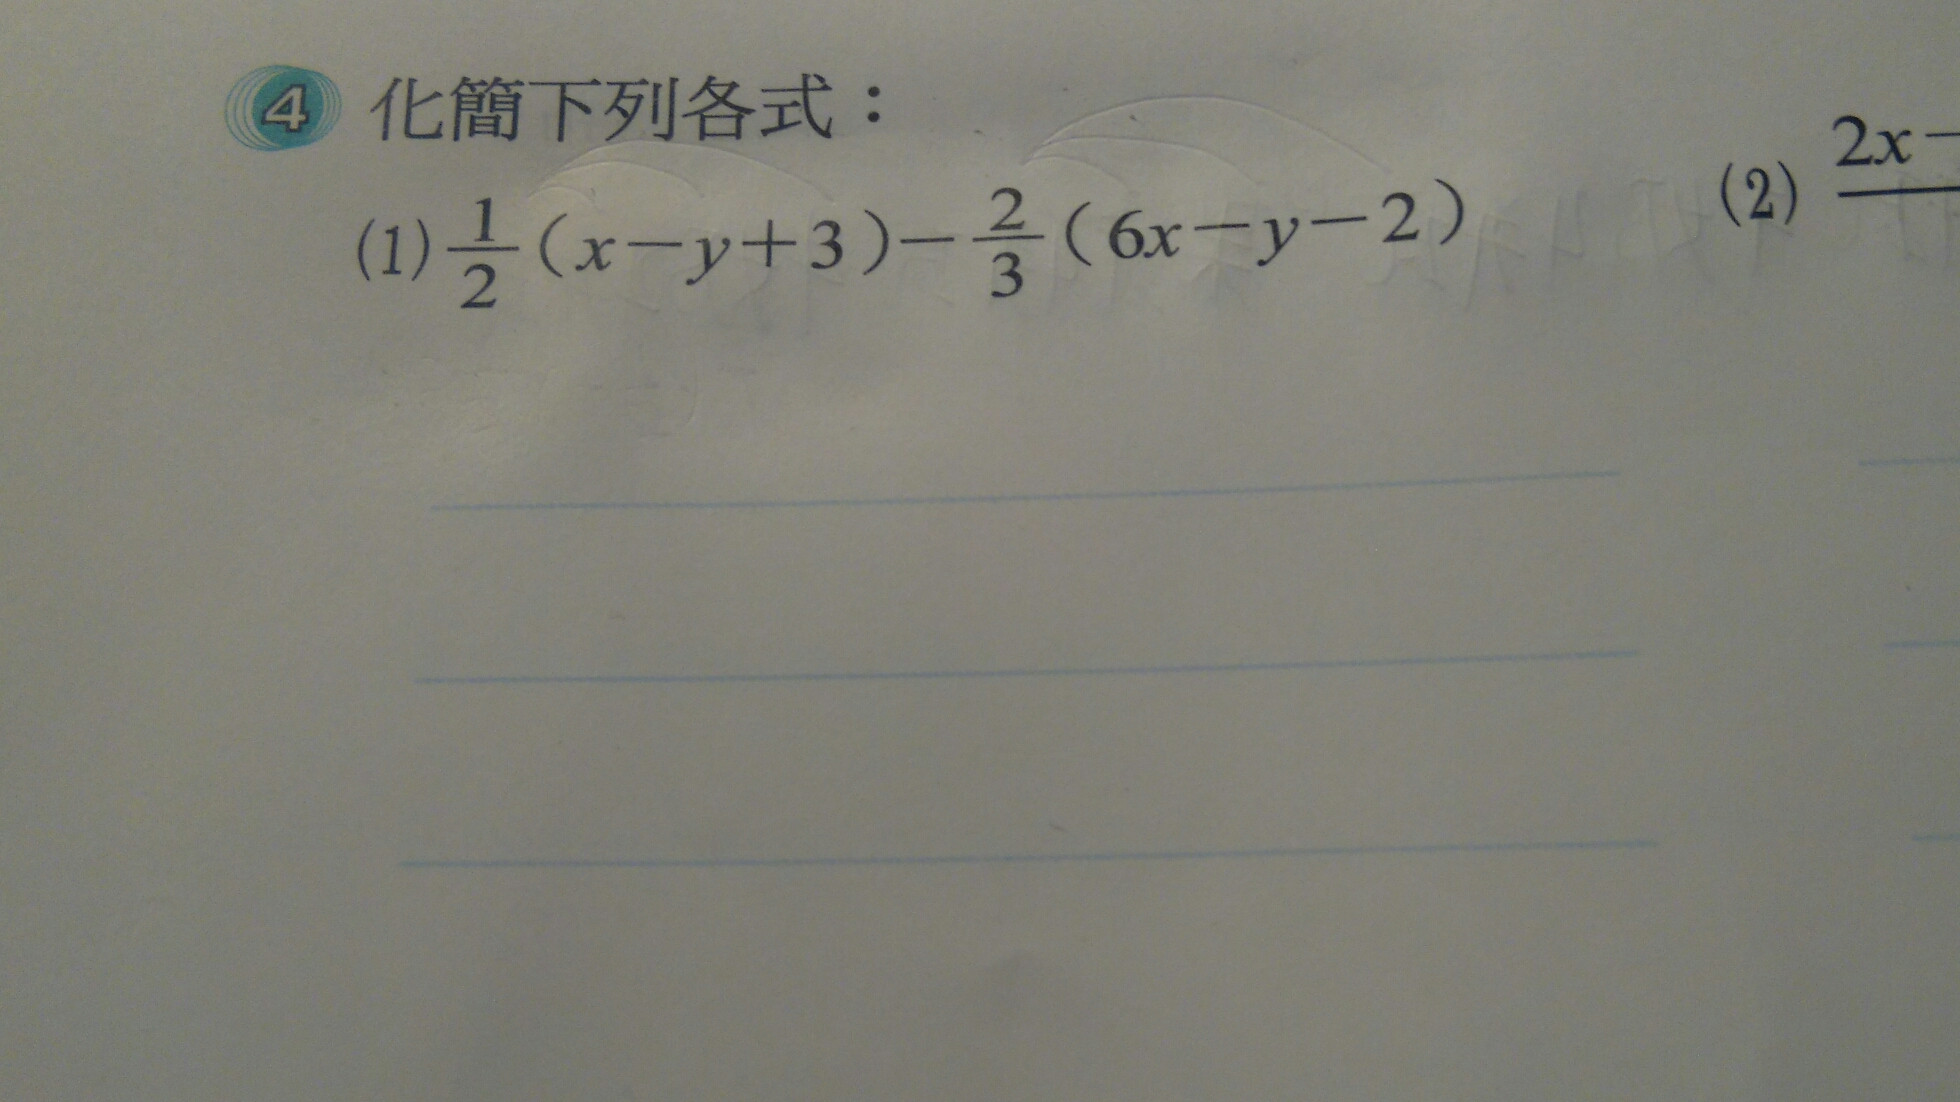 4 化簡下列各式：
(1) 1/2（x－y＋3）－2/3（6x－y－2）
(2) 2x－